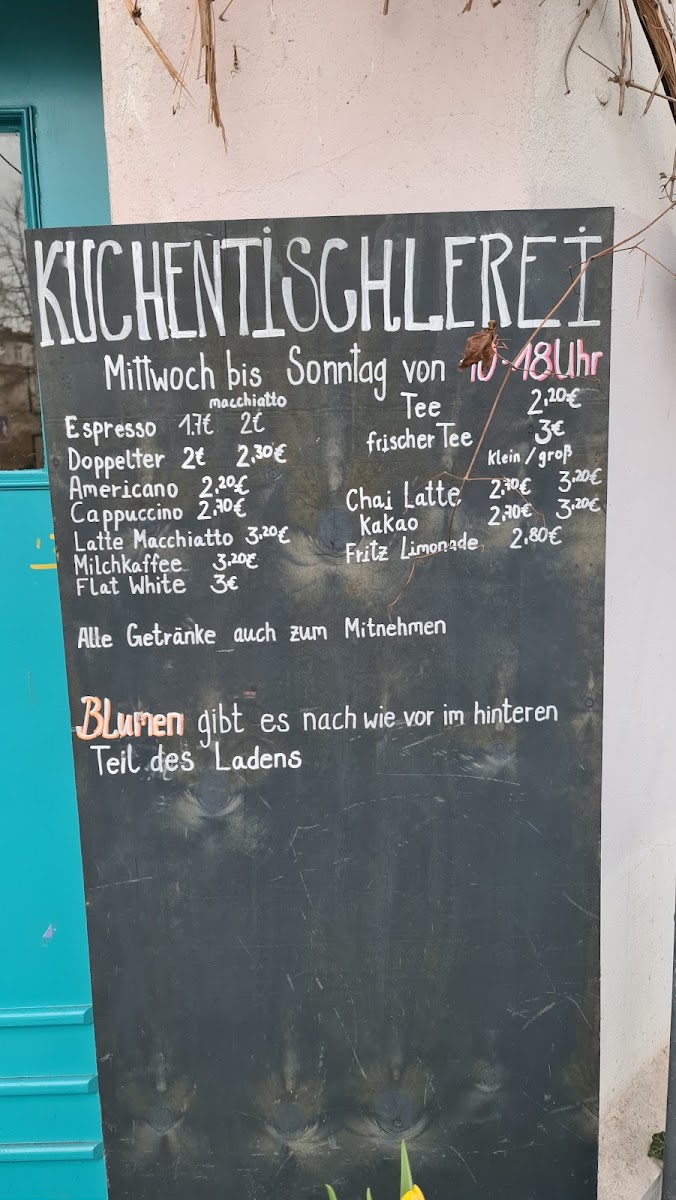 KUCHENTISCHLEREI
Mittwoch bis Sonntag von 10-18Uhr
macchiatto
Espresso 1.7€ 2€
Doppelter 2€ 2,30€
Americano 2,20€
Cappuccino 2,70€
Latte Macchiatto 3,20€
Milchkaffee 3,20€
Flat White 3€
Tee 2,20€
frischer Tee 3€
klein / groß
Chai Latte 2,70€ 3,20€
Kakao 2,70€ 3,20€
Fritz Limonade 2,80€
Alle Getränke auch zum Mitnehmen
Blumen gibt es nach wie vor im hinteren
Teil des Ladens